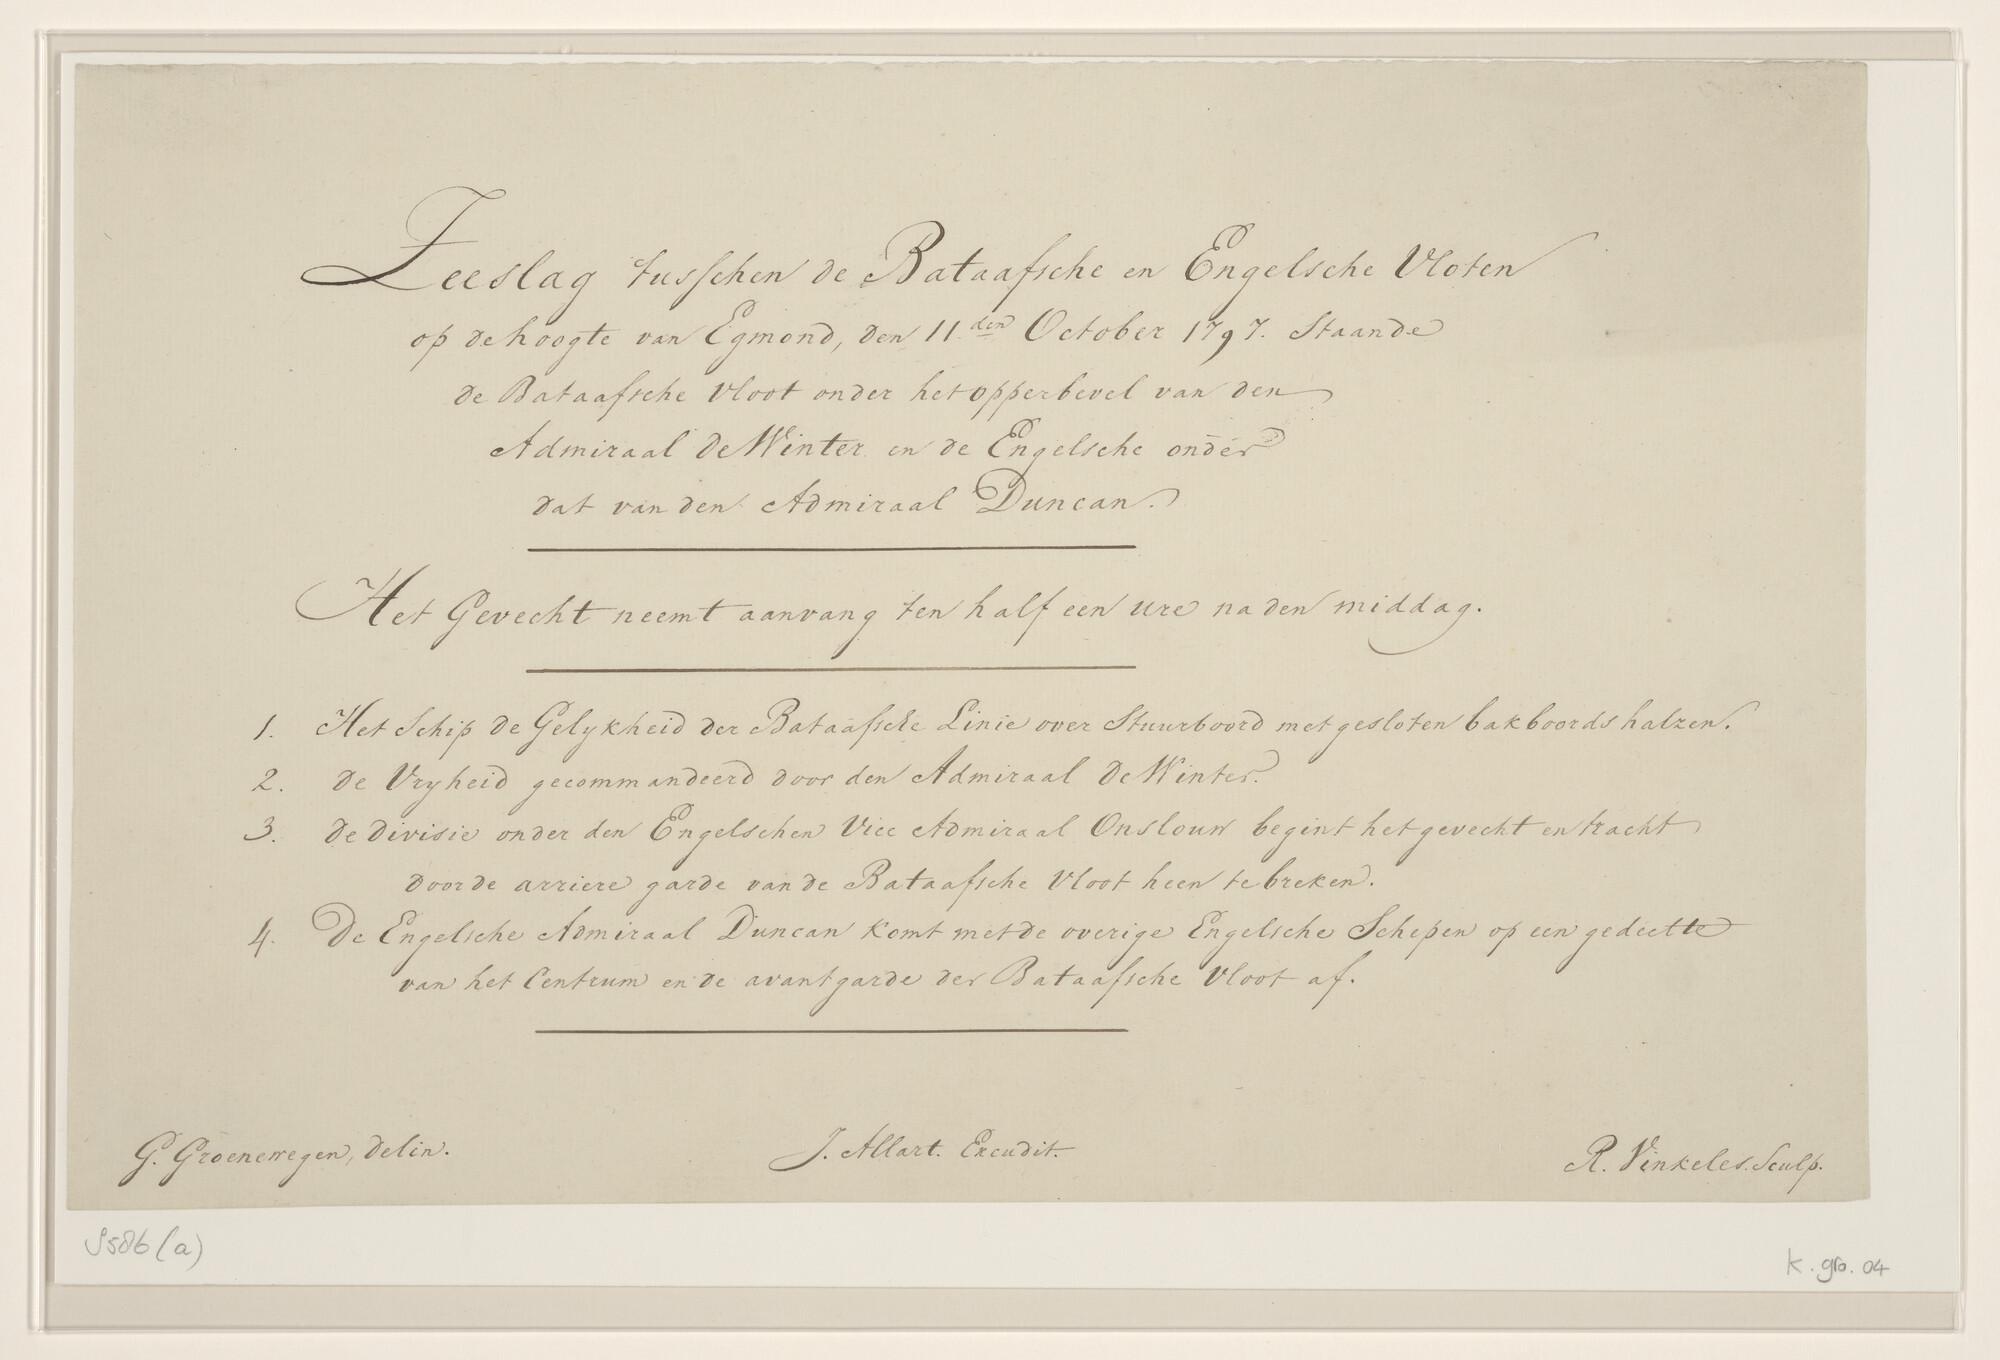 Zeeslag tusschen de Bataafsche en Engelsche Vloten
op de hoogte van Egmond, den 11den October 1797. Staande
de Bataafsche Vloot onder het opperbevel van den
Admiraal De Winter en de Engelsche onder
dat van den Admiraal Duncan.
Het Gevecht neemt aanvang ten half een ure na den middag.
1. Het Schip de Gelykheid der Bataafsche Linie over Stuurboord met gesloten bakboords halzen.
2. De Vryheid gecommandeerd door den Admiraal De Winter.
3. De divisie onder den Engelschen Vice Admiraal Onslouw begint het gevecht en tracht
door de arriere garde van de Bataafsche Vloot heen te breken.
4. De Engelsche Admiraal Duncan komt met de overige Engelsche Schepen op een gedeelte
van het Centrum en de avantgarde der Bataafsche Vloot af.
G. Groenewegen, delin. J. Allart. Excudit. R. Vinkeles. Sculp.
S586 (a) K. gro. 04